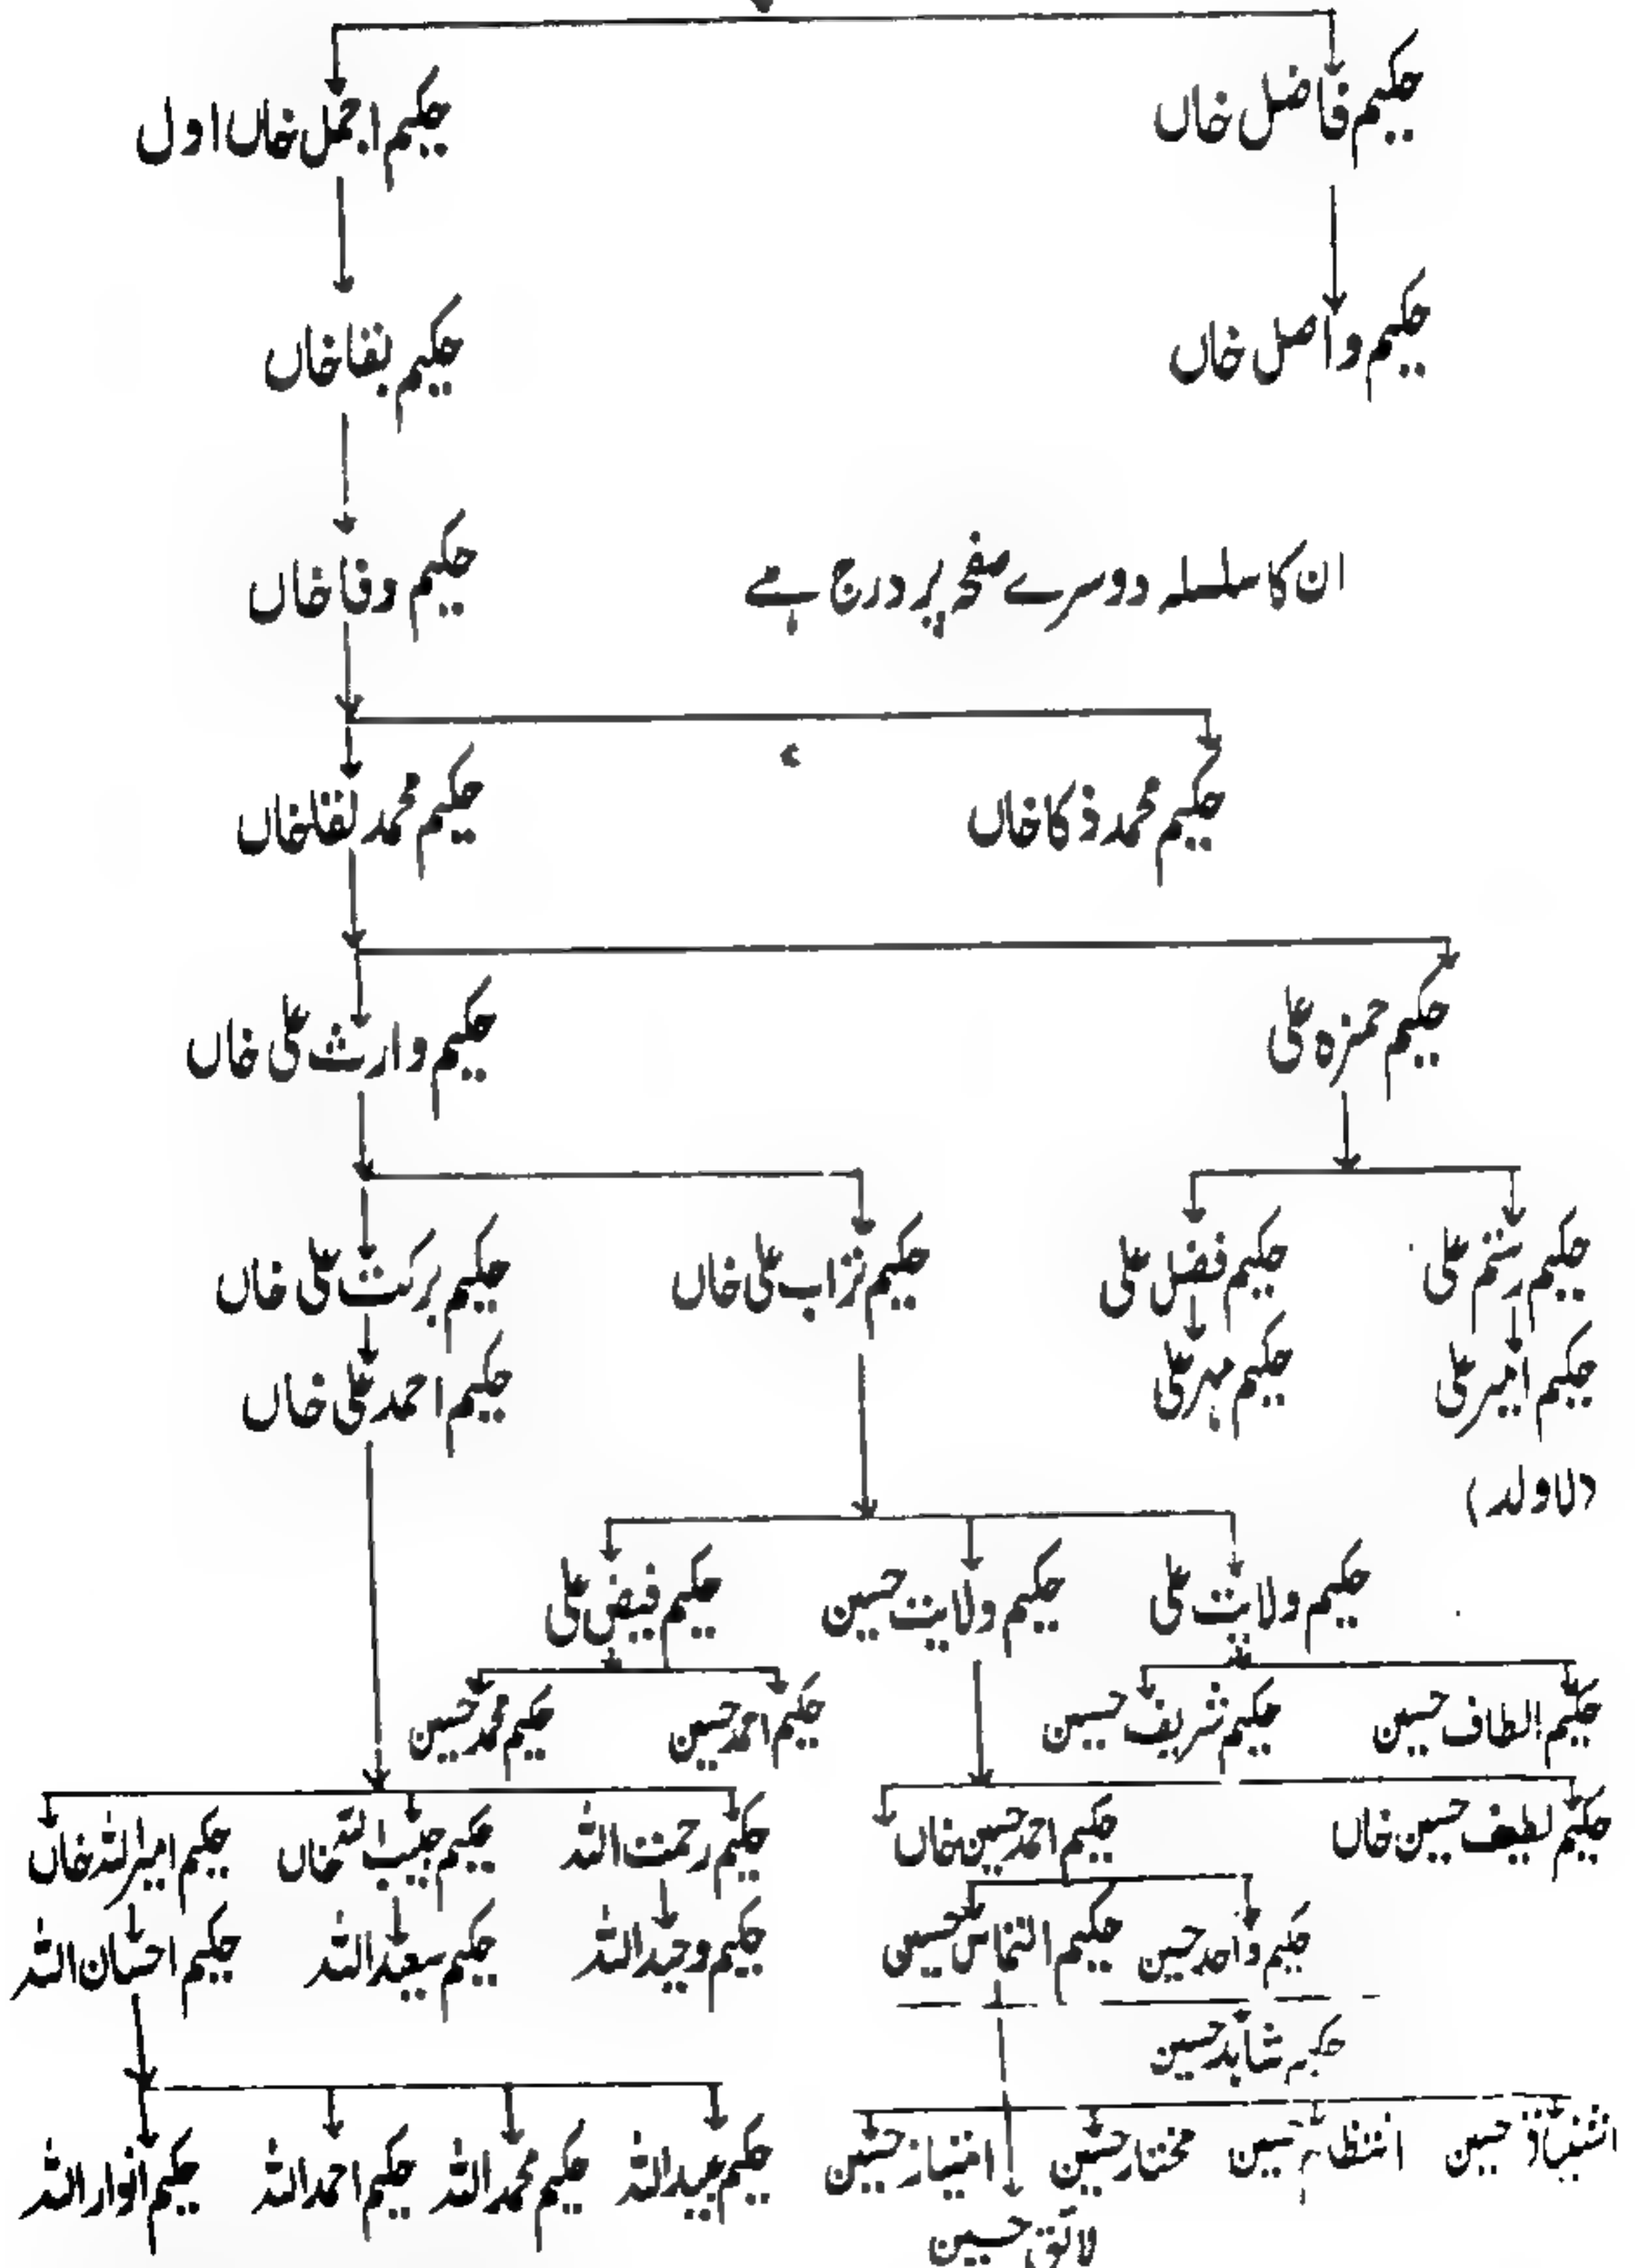 حکیم فاضل خاں
حکیم اجمل خاں اول
حکیم واصل خاں
حکیم بقا خاں
ان کا سلسلہ دوسرے صفحہ پر درج ہے
حکیم وفا خاں
حکیم محمد ذکا خاں
حکیم محمد لقا خاں
حکیم حمزہ علی
حکیم وارث علی خاں
حکیم رستم علی
حکیم فضل علی
حکیم تراب علی خاں
حکیم برکت علی خاں
حکیم امیر علی
حکیم مہر علی
حکیم احمد علی خاں
(لا ولد)
حکیم ولایت علی
حکیم ولایت حسین
حکیم فیض علی
حکیم الطاف حسین
حکیم شریف حسین
حکیم احمد حسین
حکیم محمد حسین
حکیم لطیف حسین خاں
حکیم احمد حسین خاں
حکیم رحمت اللہ
حکیم حبیب اللہ خاں
حکیم امیر اللہ خاں
حکیم واحد حسین
حکیم التماس حسین
حکیم وحید اللہ
حکیم سعید اللہ
حکیم احسان اللہ
حکیم شاہد حسین
اشتیاق حسین
انتظام حسین
مختار حسین
امتیاز حسین
حکیم عبید اللہ
حکیم محمد اللہ
حکیم احمد اللہ
حکیم انوار اللہ
لائق حسین